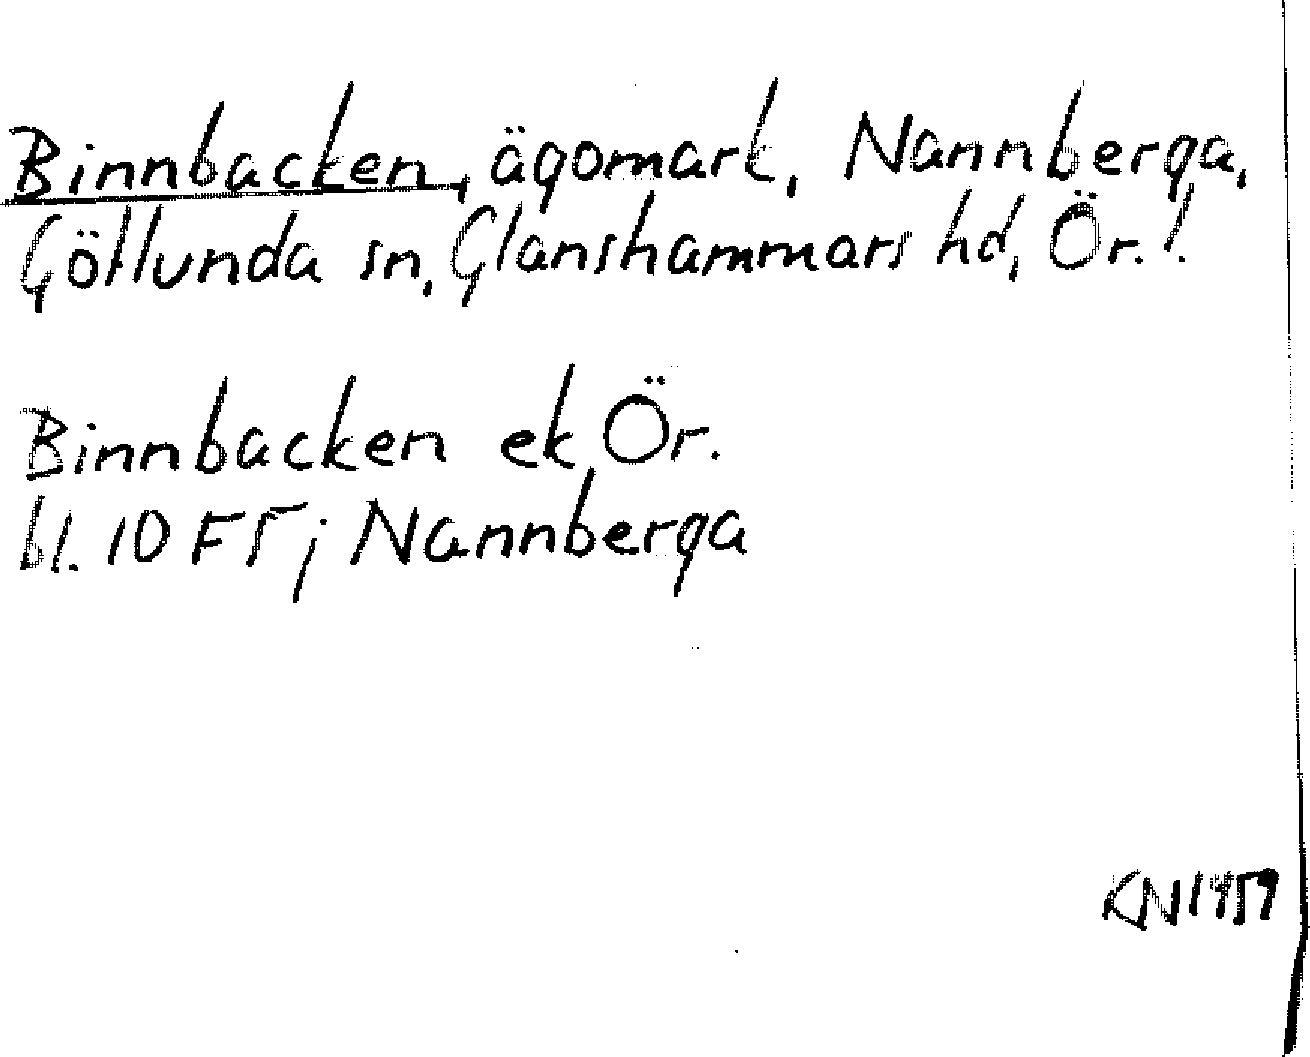 Binnbacken, ägomark, Nannberga,
Götlunda sn, Glanshammars hd, Ör. l.
Binnbacken ek Ör.
bl. 10 F5; Nannberga
KN 1959